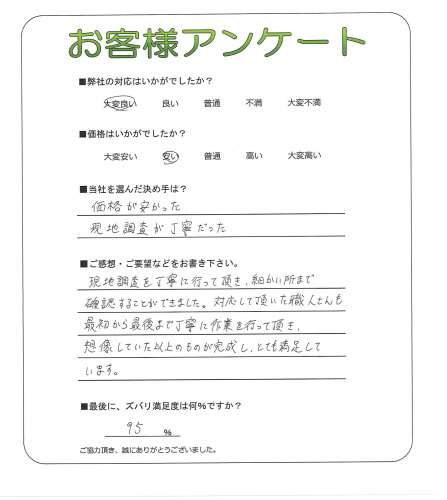 お客様アンケート
■弊社の対応はいかがでしたか？
大変良い　良い　普通　不満　大変不満
■価格はいかがでしたか？
大変安い　安い　普通　高い　大変高い
■当社を選んだ決め手は？
価格が安かった
現地調査が丁寧だった
■ご感想・ご要望などをお書き下さい。
現地調査を丁寧に行って頂き、細かい所まで
確認することができました。対応して頂いた職人さんも
最初から最後まで丁寧に作業を行って頂き、
想像していた以上のものが完成し、とても満足して
います。
■最後に、ズバリ満足度は何%ですか？
95 %
ご協力頂き、誠にありがとうございました。